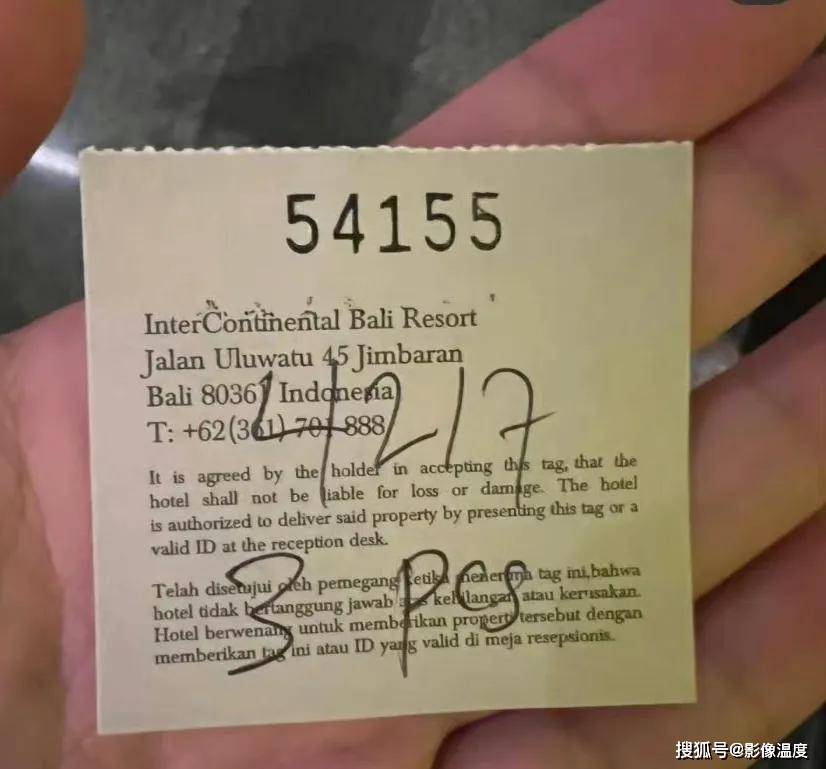 54155
InterContinental Bali Resort
Jalan Uluwatu 45 Jimbaran
Bali 80361 Indonesia
T: +62(361) 701 888
4217
It is agreed by the holder in accepting this tag, that the
hotel shall not be liable for loss or damage. The hotel
is authorized to deliver said property by presenting this tag or a
valid ID at the reception desk.
Telah disetujui oleh pemegang ketika menerima tag ini,bahwa
hotel tidak bertanggung jawab atas kehilangan atau kerusakan.
Hotel berwenang untuk memberikan properti tersebut dengan
memberikan tag ini atau ID yang valid di meja resepsionis.
3 pcs
搜狐号@影像温度